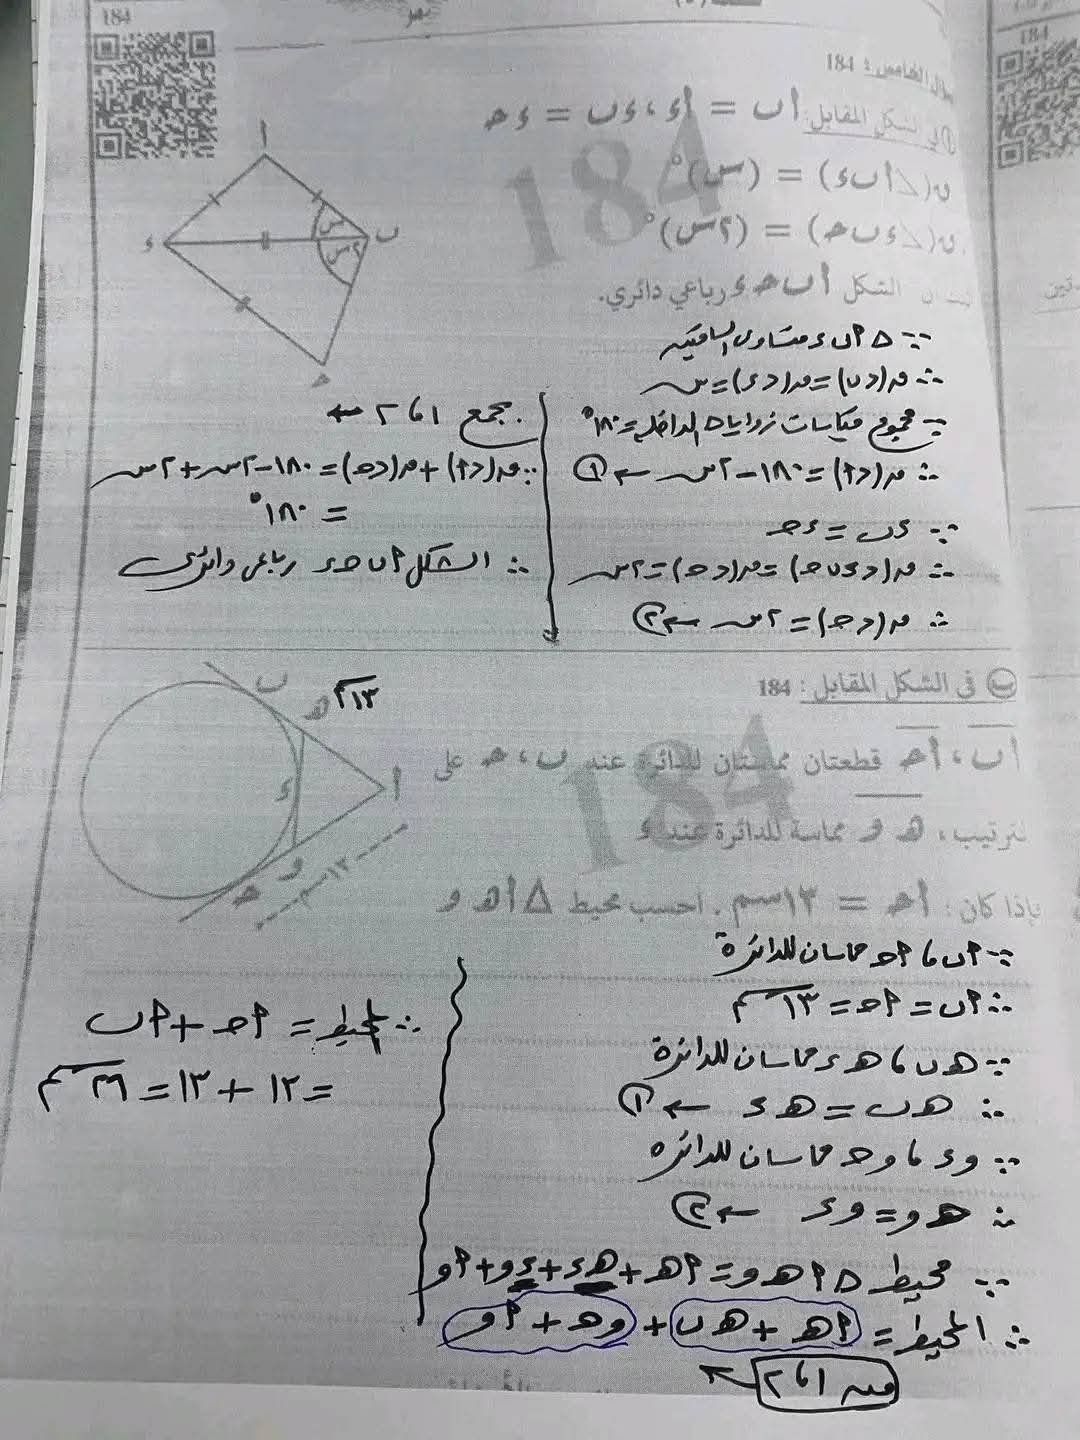 184
184
السؤال الخامس: 184
في الشكل المقابل: أب = أء ، ءب = ءحـ
ق(∠أبء) = (س)°
ق(∠ءبحـ) = (٢س)°
الشكل أبحـء رباعي دائري.
أ
ب
ء
حـ
س
٢س
184
∵ △ أبء متساوى الساقين
∴ ق(∠ب) = ق(∠ء) = س
∵ مجموع قياسات زوايا △ الداخلة = ١٨٠°
∴ ق(∠أ) = ١٨٠ - ٢س ← ①
∵ ءب = ءحـ
∴ ق(∠ءبحـ) = ق(∠حـ) = ٢س
∴ ق(∠حـ) = ٢س ← ②
بجمع ١ ، ٢ ←
∴ ق(∠أ) + ق(∠حـ) = ١٨٠ - ٢س + ٢س
= ١٨٠°
∴ الشكل أبحـء رباعى دائرى
ب في الشكل المقابل: 184
أب ، أحـ قطعتان مماستان للدائرة عند ب ، حـ على
الترتيب، هـ و مماسة للدائرة عند ء
فإذا كان: أحـ = ١٣سم . احسب محيط △ أهـ و
ب
هـ
١٣سم
أ
ء
و
حـ
١٣سم
184
∵ أب ، أحـ مماسان للدائرة
∴ أب = أحـ = ١٣سم
∵ هـب ، هـء مماسان للدائرة
∴ هـب = هـء ← ①
∵ وء ، وحـ مماسان للدائرة
∴ هـو = وء ← ②
∵ محيط △ أهـو = أهـ + هـء + ءو + أو
∴ المحيط = أهـ + هـب + وحـ + أو
من ١ ، ٢
∴ المحيط = أحـ + أب
= ١٣ + ١٣ = ٢٦سم